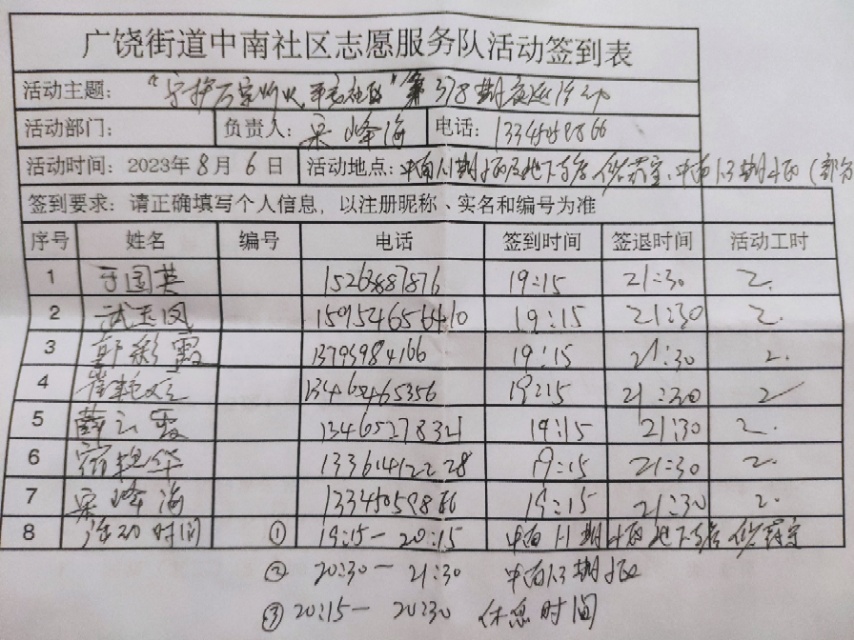 广饶街道中南社区志愿服务队活动签到表
活动主题："守护万家灯火 平安社区"第378期夜巡活动
活动部门： 负责人：宋峰海 电话：13345059866
活动时间：2023年8月6日 活动地点：中南1.1期小区及地下车库 储藏室、中南1.3期小区（部分
签到要求：请正确填写个人信息，以注册昵称、实名和编号为准
序号 姓名 编号 电话 签到时间 签退时间 活动工时
1 于国英 19:15 21:30 2.
2 武玉凤 19:15 21:30 2.
3 郭彩霞 13793984166 19:15 21:30 2.
4 崔艳 13460465356 19:15 21:30 2
5 薛云霞 13465278321 19:15 21:30 2.
6 宿艳华 13361412228 19:15 21:30 2.
7 宋峰海 13345059866 19:15 21:30 2.
8 活动时间 ① 19:15－20:15 中南1.1期小区 地下车库 储藏室
② 20:30－21:30 中南1.3期小区
③ 20:15－20:30 休息时间